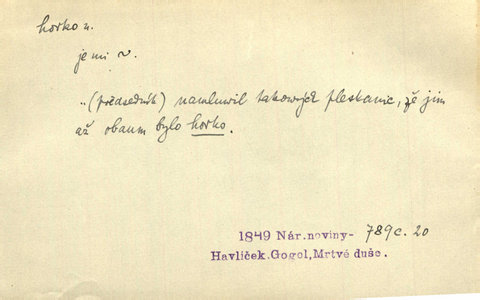 horko n.
je mi ~.
„(předsedník) namluwil takowých pleskanic, že jim
až oboum bylo horko.
1849 Nár.noviny- 789c. 20
Havlíček.Gogol,Mrtvé duše.